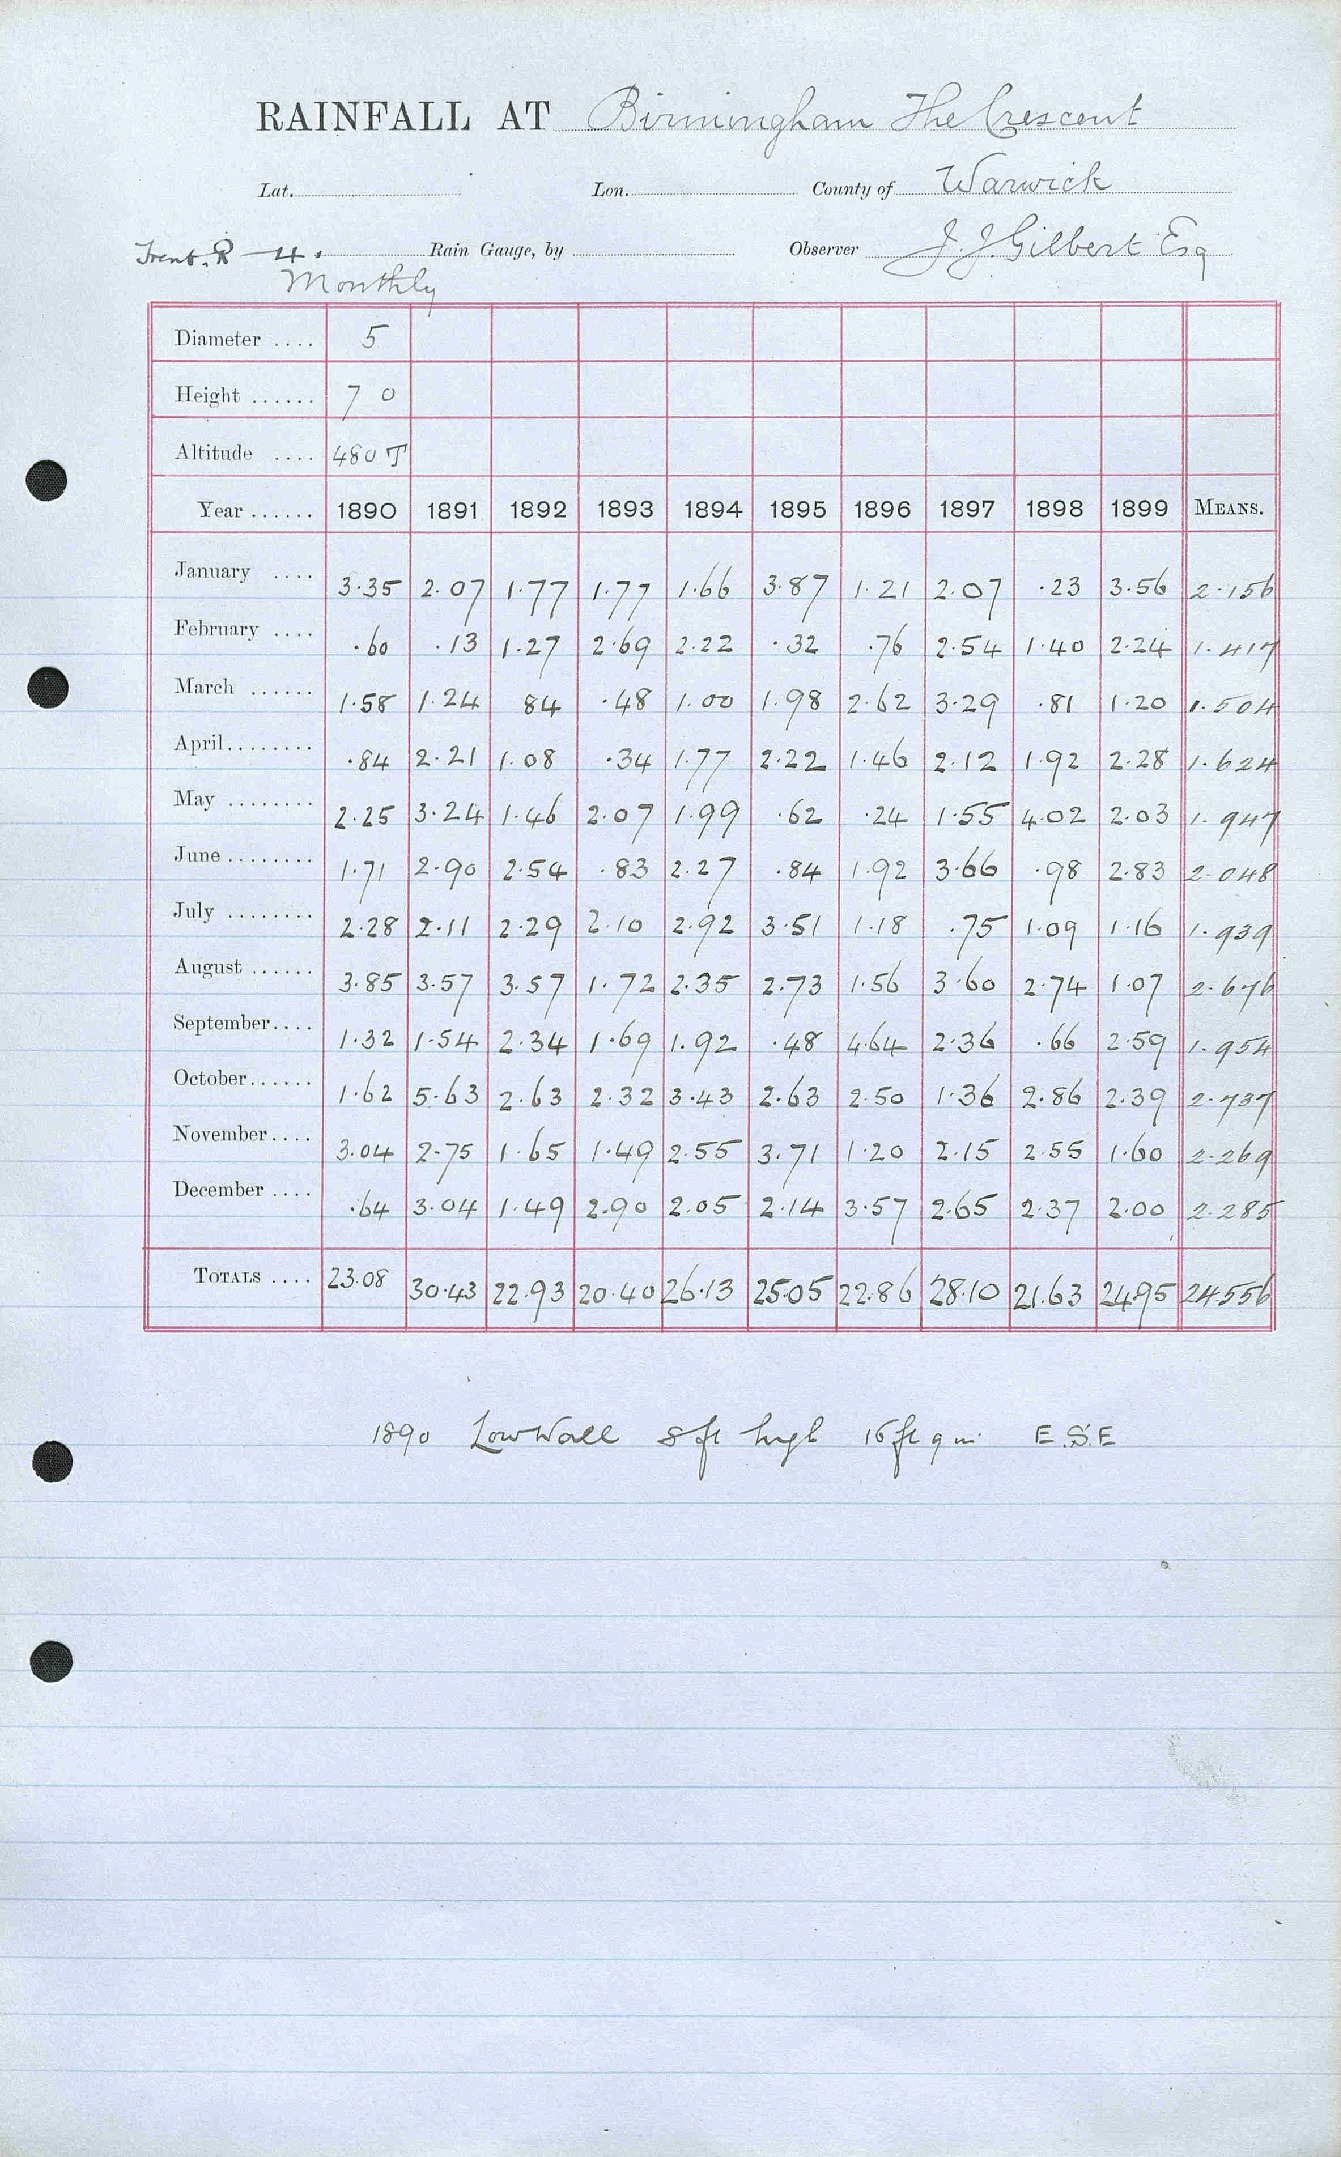 RAINFALL AT Birmingham The Crescent
Lat. Lon. County of Warwick
Trent. R — 4. Rain Gauge, by Observer J. J. Gilbert Esq
Monthly
Diameter .... 5
Height ...... 7 0
Altitude .... 480 T
Year ...... 1890 1891 1892 1893 1894 1895 1896 1897 1898 1899 MEANS.
January .... 3.35 2.07 1.77 1.77 1.66 3.87 1.21 2.07 .23 3.56 2.156
February .... .60 .13 1.27 2.69 2.22 .32 .76 2.54 1.40 2.24 1.417
March ...... 1.58 1.24 84 .48 1.00 1.98 2.62 3.29 .81 1.20 1.504
April........ .84 2.21 1.08 .34 1.77 2.22 1.46 2.12 1.92 2.28 1.624
May ........ 2.25 3.24 1.46 2.07 1.99 .62 .24 1.55 4.02 2.03 1.947
June ........ 1.71 2.90 2.54 .83 2.27 .84 1.92 3.66 .98 2.83 2.048
July ........ 2.28 2.11 2.29 2.10 2.92 3.51 1.18 .75 1.09 1.16 1.939
August ...... 3.85 3.57 3.57 1.72 2.35 2.73 1.56 3.60 2.74 1.07 2.676
September.... 1.32 1.54 2.34 1.69 1.92 .48 4.64 2.36 .66 2.59 1.954
October...... 1.62 5.63 2.63 2.32 3.43 2.63 2.50 1.36 2.86 2.39 2.737
November.... 3.04 2.75 1.65 1.49 2.55 3.71 1.20 2.15 2.55 1.60 2.269
December .... .64 3.04 1.49 2.90 2.05 2.14 3.57 2.65 2.37 2.00 2.285
TOTALS .... 23.08 30.43 22.93 20.40 26.13 25.05 22.86 28.10 21.63 24.95 24.556
1890 Low Wall 8 ft high 16 ft 9 in E.S.E